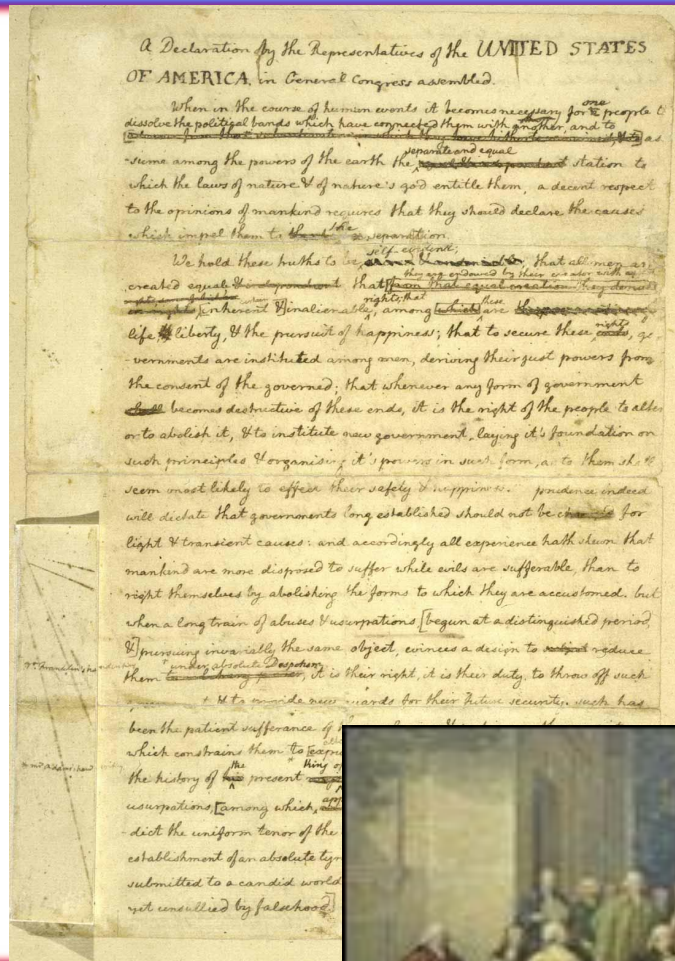 A Declaration by the Representatives of the UNITED STATES
OF AMERICA, in General Congress assembled.
When in the course of human events it becomes necessary for one people to
dissolve the political bands which have connected them with another, and to
as
separate and equal
-sume among the powers of the earth the station to
which the laws of nature & of nature's god entitle them, a decent respect
to the opinions of mankind requires that they should declare the causes
which impel them to the separation.
self-evident;
We hold these truths to be that all men are
they are endowed by their creator with
created equal that from that equal creation they derive
rights; that these
inherent & inalienable, among which are
life liberty, & the pursuit of happiness; that to secure these rights, go
-vernments are instituted among men, deriving their just powers from
the consent of the governed; that whenever any form of government
becomes destructive of these ends, it is the right of the people to alter
or to abolish it, & to institute new government, laying it's foundation on
such principles & organising it's powers in such form, as to them shall
seem most likely to effect their safety & happiness. prudence indeed
will dictate that governments long established should not be changed for
light & transient causes: and accordingly all experience hath shewn that
mankind are more disposed to suffer while evils are sufferable, than to
right themselves by abolishing the forms to which they are accustomed. but
when a long train of abuses & usurpations [begun at a distinguished period,
&] pursuing invariably the same object, evinces a design to reduce
under absolute Despotism
them it is their right, it is their duty, to throw off such
& to provide new guards for their future security. such has
been the patient sufferance of
which constrains them to
the history of the present
usurpations, [among which,
-dict the uniform tenor of the
establishment of an absolute
submitted to a candid world
yet unsullied by falsehood]